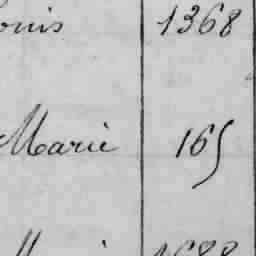 ouis 1368
Marie 165